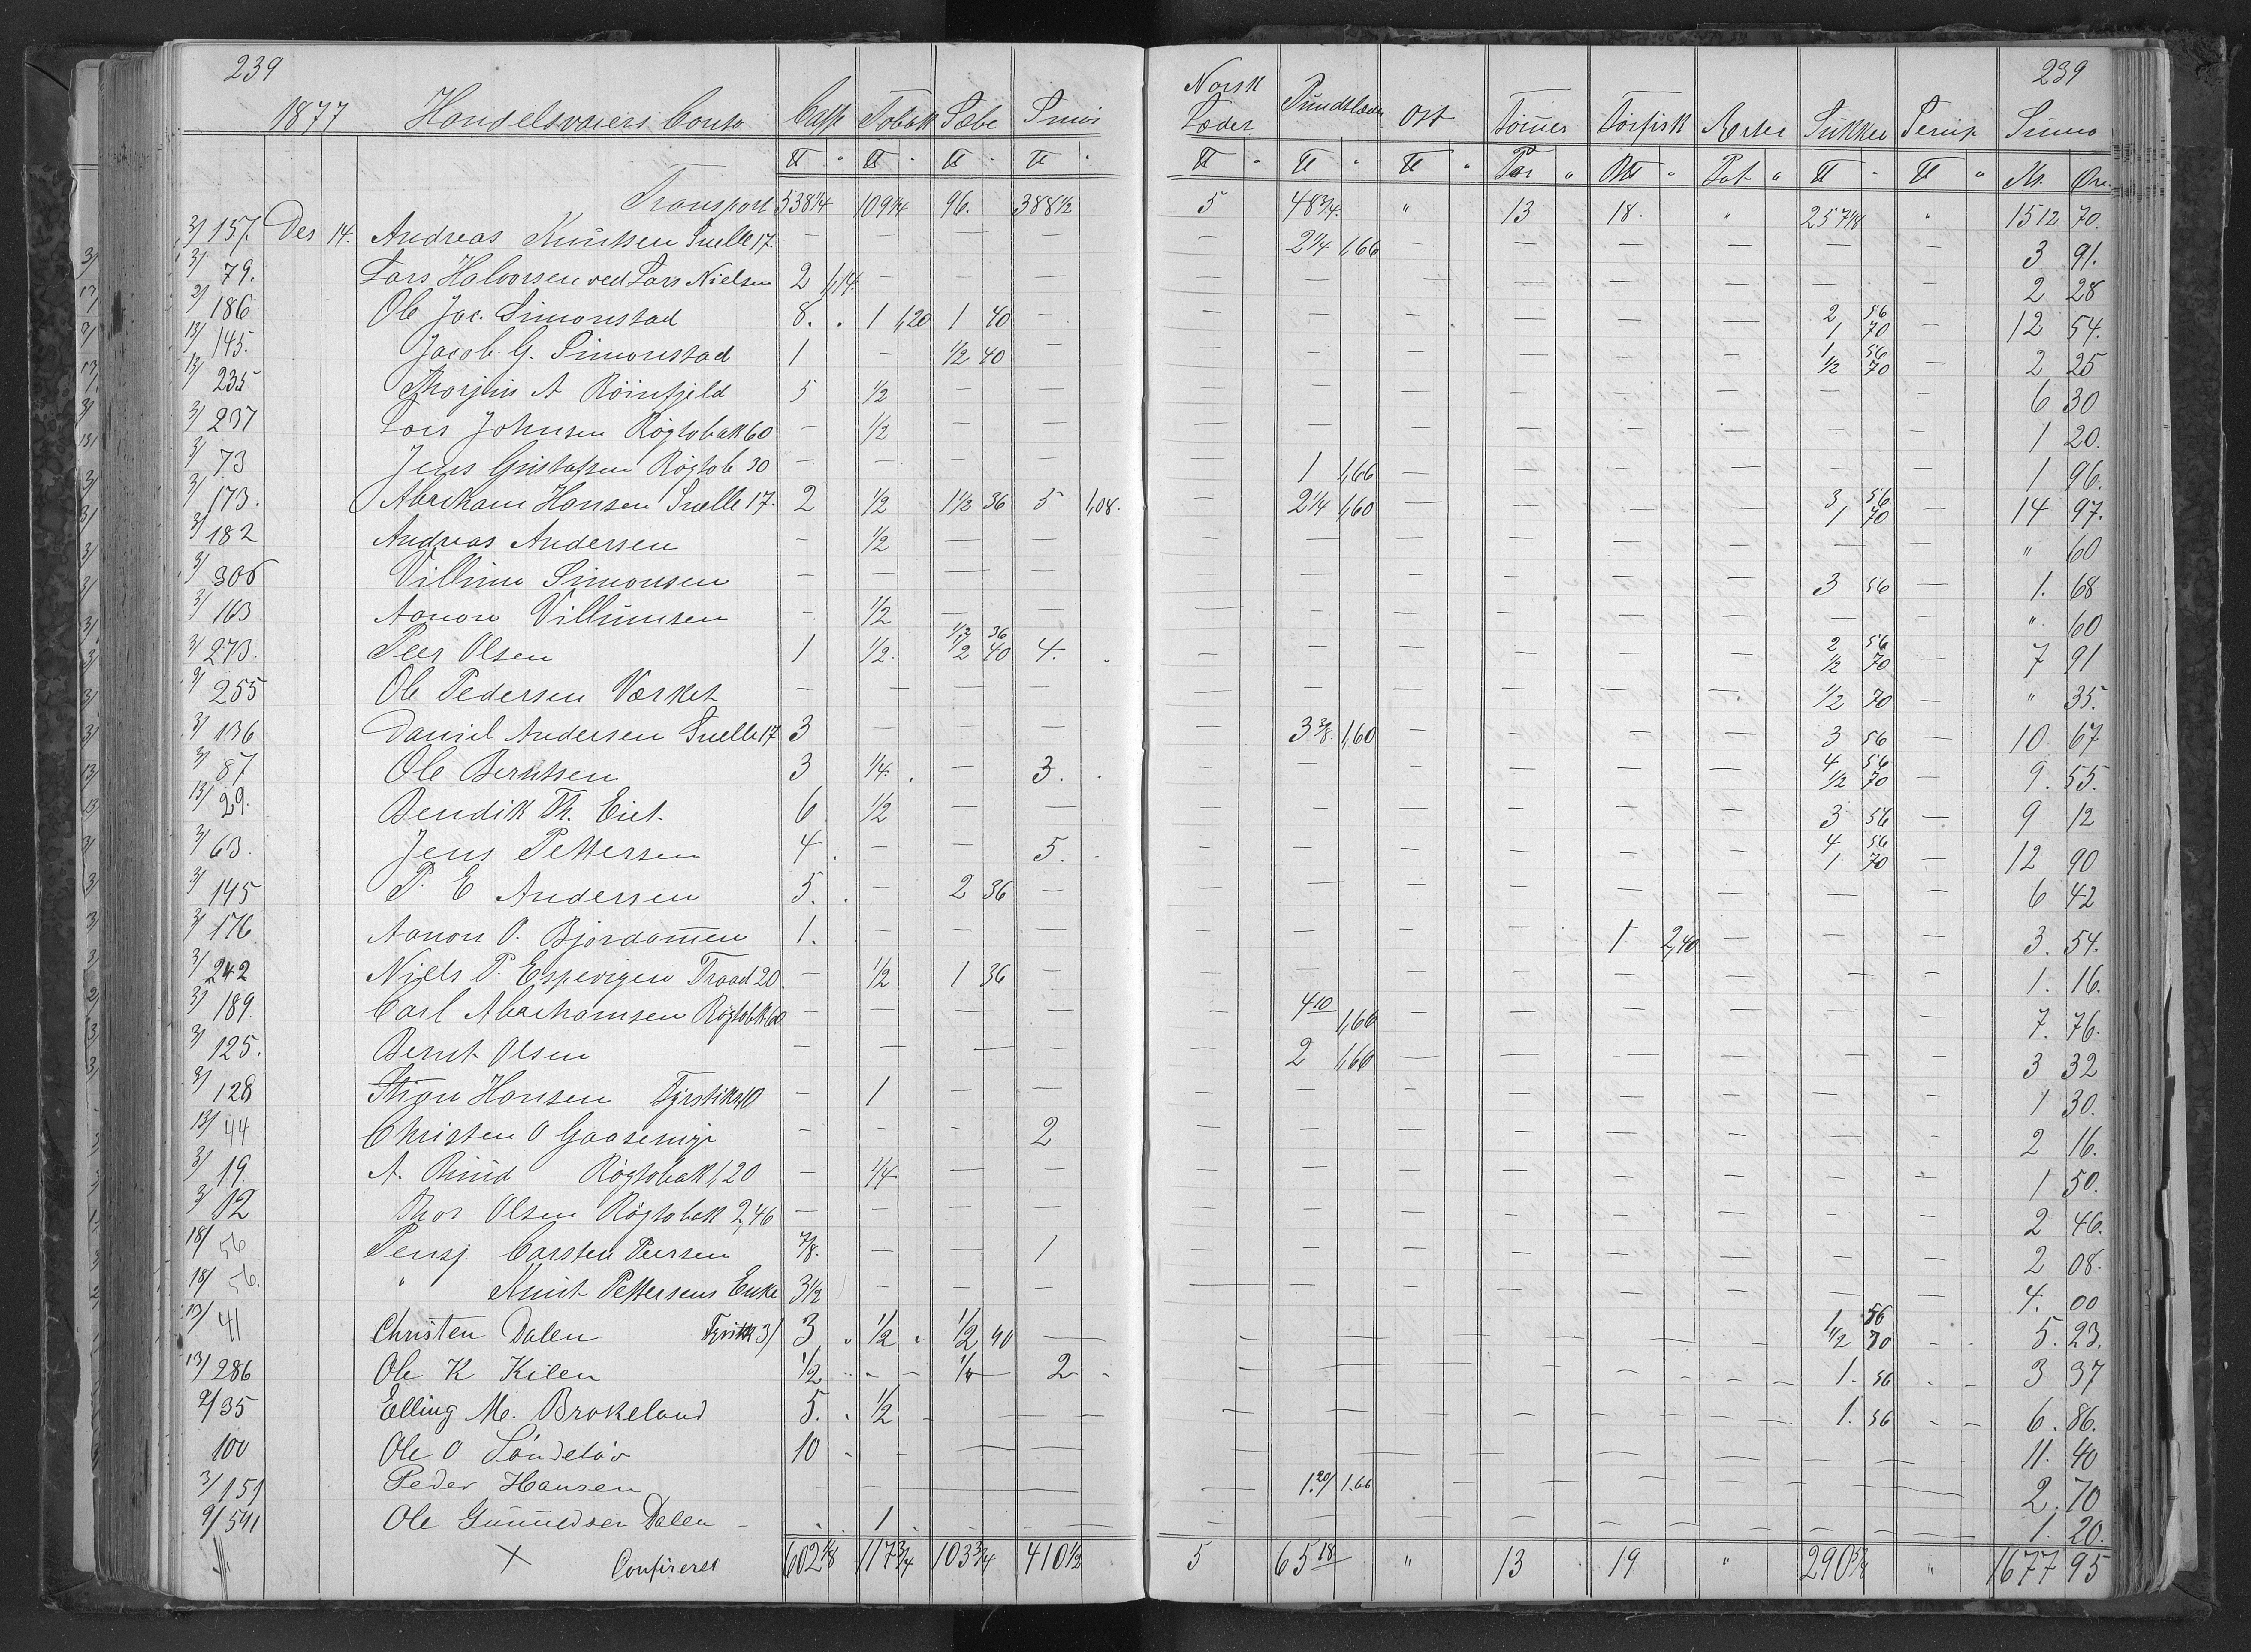 239 239
1877 Handelsvarers Conto Caffe Tobak Sæbe Smør Norsk Læder Pundslæder Ost Tømmer Tørfisk Ærter Sukker Serup Summa
℔ " ℔ " ℔ " ℔ " ℔ " ℔ " ℔ " Par " " Pot " ℔ " ℔ " Kr. Øre
Transport 538 1/4 109 1/4 96. 388 1/2 5 48 3/4 " 13 18. " 257 1/8 " 1512 70.
3/157. Des 14. Andreas Knutsen Snelle 17. — — — — — 2 1/4 1,66 — — — — — — 3 91.
3/79. Lars Halvorsen ved Lars Nielsen 2 1,14. — — — — — — — — — — — 2 28
2/186 Ole Jac. Simonstad 8. . 1 1,20 1 40 — — — — — — — 2 56 1 70 — 12 54.
13/145. Jacob G. Simonstad 1 — 1/2 40 — — — — — — 1 56 1/2 70 — 2 25
13/235 Thorjus A Röinfjeld 5 1/2 — — — — — — — — — — 6 30
3/237 Lars Johnsen Røgtobak 60 — 1/2 — — — — — — — — — — 1 20.
3/73 Jens Gustafsen Røgtob 30 — — — — — 1 1,66 — — — — — — 1 96.
3/173. Abraham Hansen Snelle 17. 2 1/2 1 1/2 36 5 1,08. — 2 1/4 1,60 — — — — 3 56 1 70 — 14 97.
3/182 Andreas Andersen — 1/2 — — — — — — — — — — " 60
3/306 Villum Simonsen — — — — — — — — — — 3 56 — 1. 68
3/163 Aanon Villumsen — 1/2 — — — — — — — — — — " 60
3/273. Peer Olsen 1 1/2. 1/2 36 1/2 40 4. . — — — — — — 2 56 1/2 70 — 7 91
3/255 Ole Pedersen Værket — — — — — — — — — — 1/2 70 — " 35.
3/136 Daniel Andersen Snelle 17 3 — — — 3 3/8 1,60 — — — — 3 56 — 10 67
3/87 Ole Berntsen 3 1/4. . — 3. . — — — — — — 4 56 1/2 70 — 9. 55.
13/29. Bendik Th. Eiet 6 1/2 — — — — — — — — 3 56 — 9 12
3/63. Jens Pettersen 4. . — — 5. . — — — — — — 4 56 1 70 — 12 90
3/145 P. E Andersen 5. . — 2 36 — — — — — — — — — 6 42
3/176 Aanon O. Bjordammen 1. — — — — — — — 1 2,40 — — — 3. 54.
3/242 Niels P. Espevigen Traad 20 — 1/2 1 36 — — — — — — — — — 1. 16.
3/189. Carl Abrahamsen Røgtobk 60 — — — — — 4 10 1,66 — — — — — — 7. 76.
3/125. Bernt Olsen — — — — — 2 1,66 — — — — — — 3 32
3/128 Stian Hansen Fyrstik 10 — 1 — — — — — — — — — — 1 30.
13/44 Christen O Gaasemyr — — — 2 — — — — — — — — 2 16.
3/19. A. Ruud Røgtobak 1,20 — 1/4 — — — — — — — — — — 1 50.
3/12 Thor Olsen Røgtobak 2,46 — — — — — — — — — — — — 2 46.
18/56 Pensj. Carsten Peersen 7/8. — — 1 — — — — — — — — 2 08.
18/56. " Knut Pettersens Enke 3 1/2 — — — — — — — — — — — 4. 00
13/41 Christen Dalen Fyrstik 3/ 3 . 1/2 . 1/2 40 — — — — — — — 1 56 1/2 70 — 5. 23.
13/286 Ole K Kilen 1/2 — — 1/4 — 2 — — — — — — — 1. 56 — 3 37
2/35 Elling M. Brokeland 5. . 1/2 — — — — — — — — — 1. 56 — 6. 86.
100 Ole O Söndeløv 10 — — — — — — — — — — — 11. 40
3/151 Peder Hansen — — — — — 1.20/ 1.66 — — — — — — 2. 70
2/541 Ole Gunuldsen Dalen — . 1 . — — — — — — — — — 1. 20.
× Confereret 602 1/8 117 3/4 103 3/4 410 1/2 5 65 18 " 13 19 " 290 5/8 " 1677 95